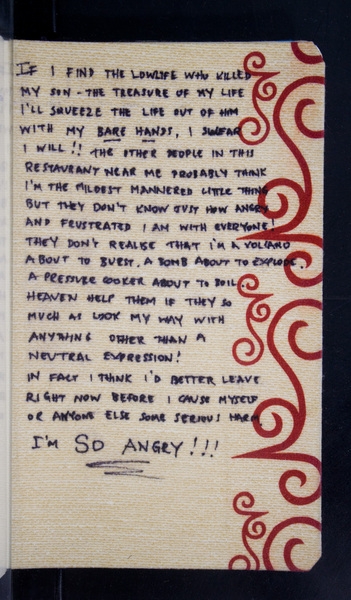 IF I FIND THE LOWLIFE WHO KILLED
MY SON - THE TREASURE OF MY LIFE
I'LL SQUEEZE THE LIFE OUT OF HIM
WITH MY BARE HANDS, I SWEAR
I WILL!! THE OTHER PEOPLE IN THIS
RESTAURANT NEAR ME PROBABLY THINK
I'M THE MILDEST MANNERED LITTLE THING
BUT THEY DON'T KNOW JUST HOW ANGRY
AND FRUSTRATED I AM WITH EVERYONE!
THEY DON'T REALISE THAT I'M A VOLCANO
ABOUT TO BURST. A BOMB ABOUT TO EXPLODE.
A PRESSURE COOKER ABOUT TO BOIL.
HEAVEN HELP THEM IF THEY SO
MUCH AS LOOK MY WAY WITH
ANYTHING OTHER THAN A
NEUTRAL EXPRESSION!
IN FACT I THINK I'D BETTER LEAVE
RIGHT NOW BEFORE I CAUSE MYSELF
OR ANYONE ELSE SOME SERIOUS HARM.
I'M SO ANGRY!!!